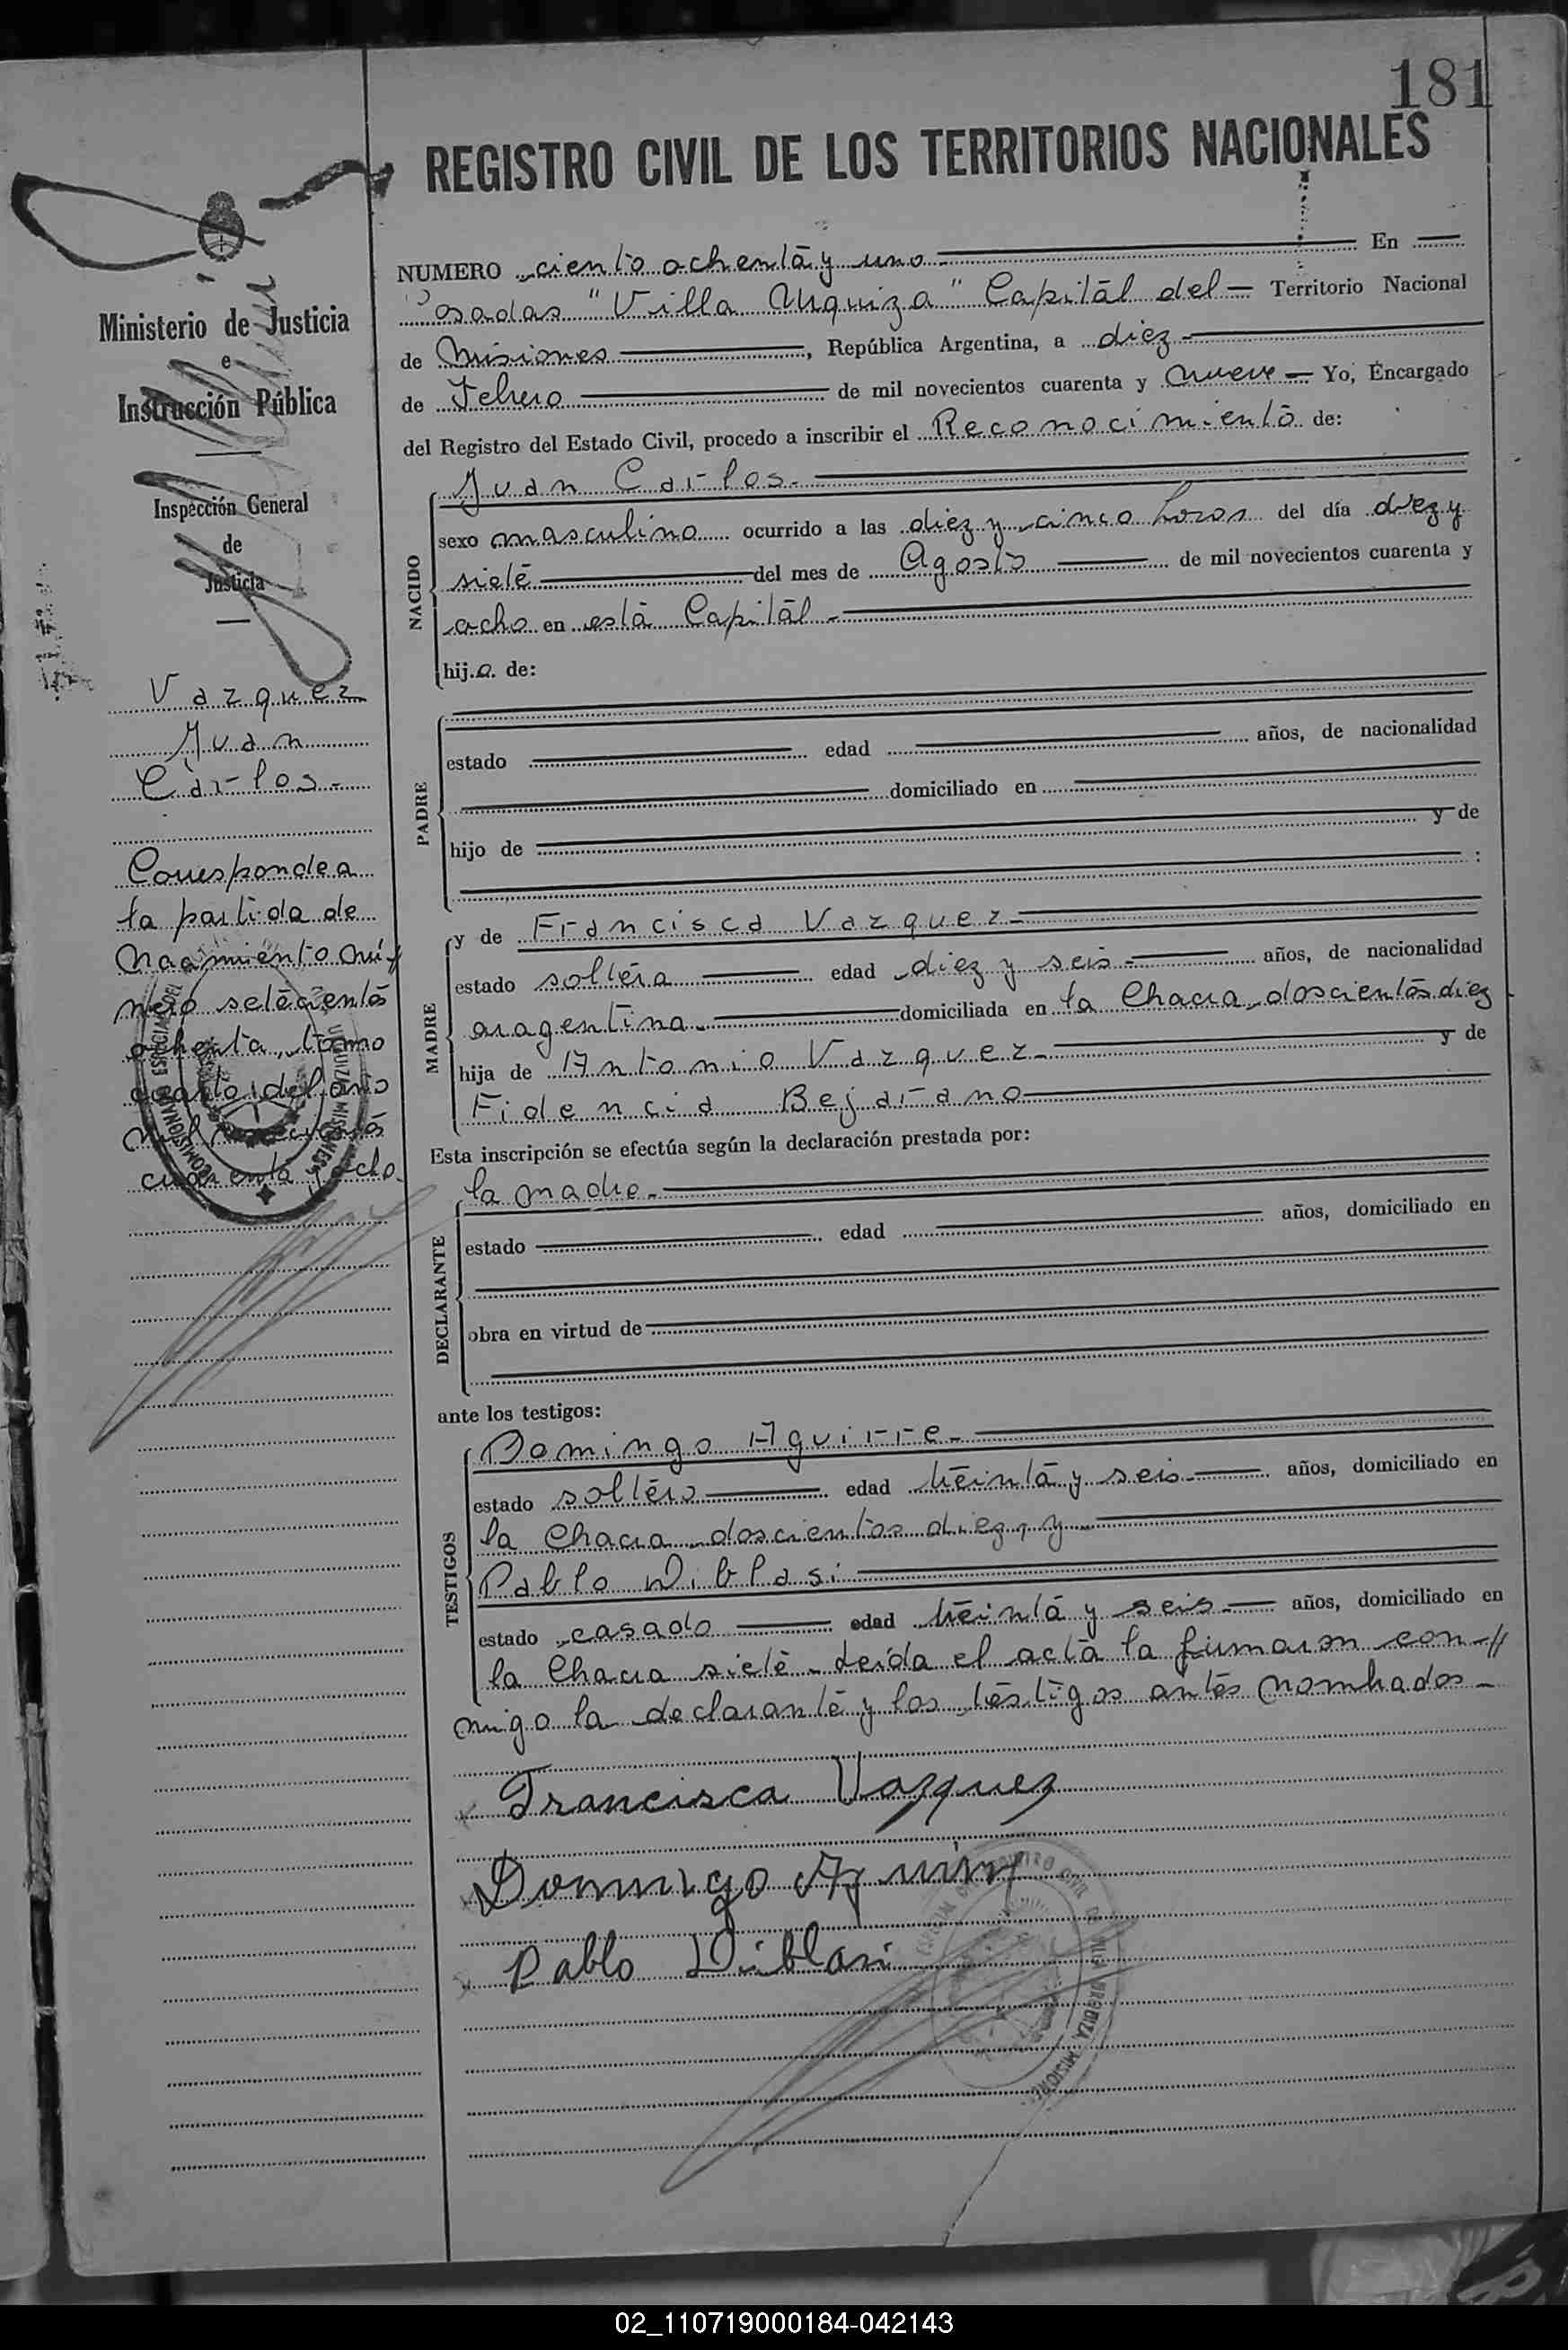 181
REGISTRO CIVIL DE LOS TERRITORIOS NACIONALES
Ministerio de Justicia
e
Instrucción Pública
Inspección General
de
Justicia
Vazquez
Juan
Carlos.-
Corresponde a
la partida de
nacimiento nú-//
mero setecientos
ochenta, tomo
cuarto, del año
mil novecientos
cuarenta y ocho.
NUMERO ciento ochenta y uno.- En
Posadas "Villa Urquiza" Capital del Territorio Nacional
de Misiones, República Argentina, a diez
de Febrero de mil novecientos cuarenta y nueve Yo, Encargado
del Registro del Estado Civil, procedo a inscribir el Reconocimiento de:
NACIDO
Juan Carlos.-
sexo masculino ocurrido a las diez y cinco horas del día diez y
siete del mes de Agosto de mil novecientos cuarenta y
ocho en está Capital.-
hijo de:
PADRE
estado edad años, de nacionalidad
domiciliado en
hijo de y de
:
MADRE
y de Francisca Vazquez.-
estado soltera edad diez y seis.- años, de nacionalidad
aragentina.- domiciliada en la Chacra doscientos diez
hija de Antonio Vazquez.- y de
Fidencia Bejarano
Esta inscripción se efectúa según la declaración prestada por:
DECLARANTE
la madre.-
estado edad años, domiciliado en
obra en virtud de
ante los testigos:
TESTIGOS
Domingo Aguirre.-
estado soltero edad treinta y seis.- años, domiciliado en
la Chacra doscientos diez, y
Pablo Diblasi
estado casado edad treinta y seis.- años, domiciliado en
la Chacra siete.- Leida el acta la firmaron con-//
migo la declarante y los testigos antes nombrados.-
Francisca Vazquez
Domingo
Pablo Diblasi
02_110719000184-042143